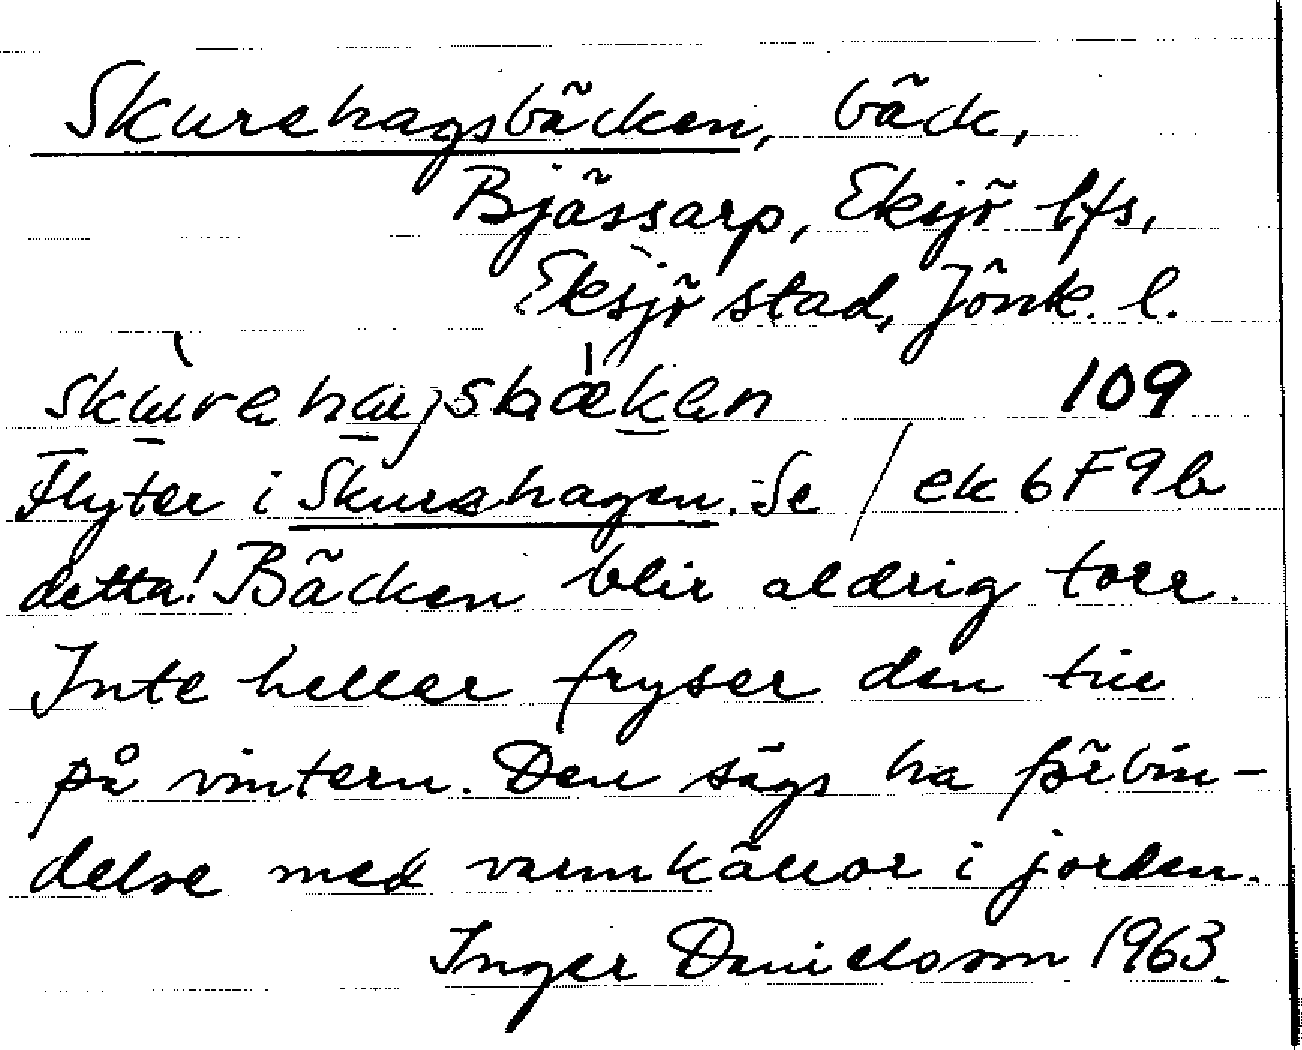 Skurehagsbäcken, bäck,
Bjässarp, Eksjö lfs,
Eksjö stad, Jönk. l.
skùrehagsbæken 109
Flyter i Skurehagen. Se / ek 6F9b
detta! Bäcken blir aldrig torr.
Inte heller fryser den till
på vintern. Den sägs ha förbin-
delse med varmkällor i jorden.
Inger Danielsson 1963.